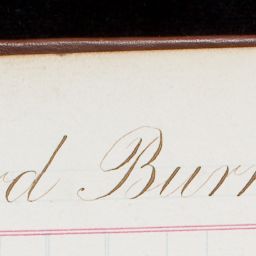 rd Burr